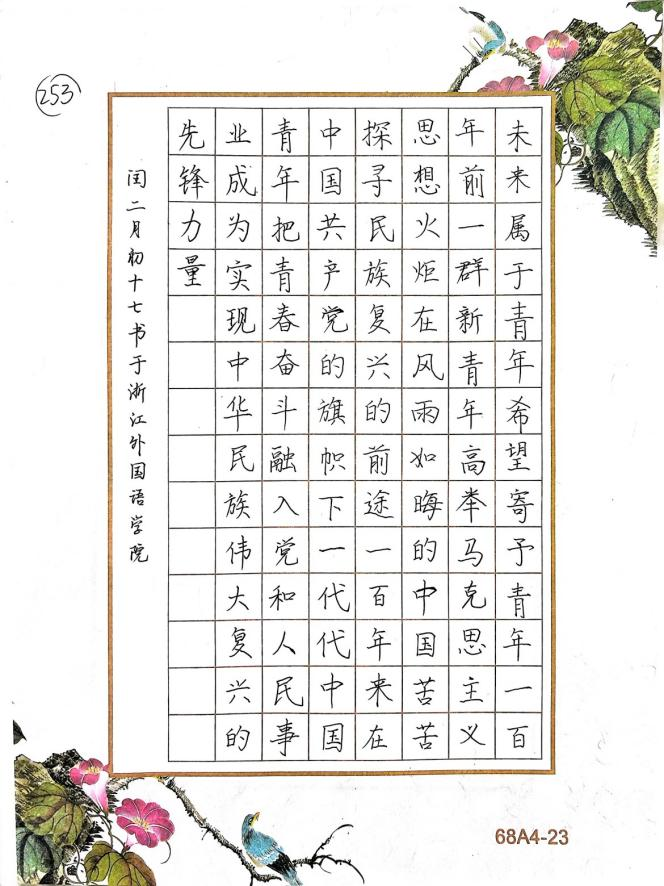 253
未来属于青年希望寄予青年一百
年前一群新青年高举马克思主义
思想火炬在风雨如晦的中国苦苦
探寻民族复兴的前途一百年来在
中国共产党的旗帜下一代代中国
青年把青春奋斗融入党和人民事
业成为实现中华民族伟大复兴的
先锋力量
闰二月初十七书于浙江外国语学院
68A4-23